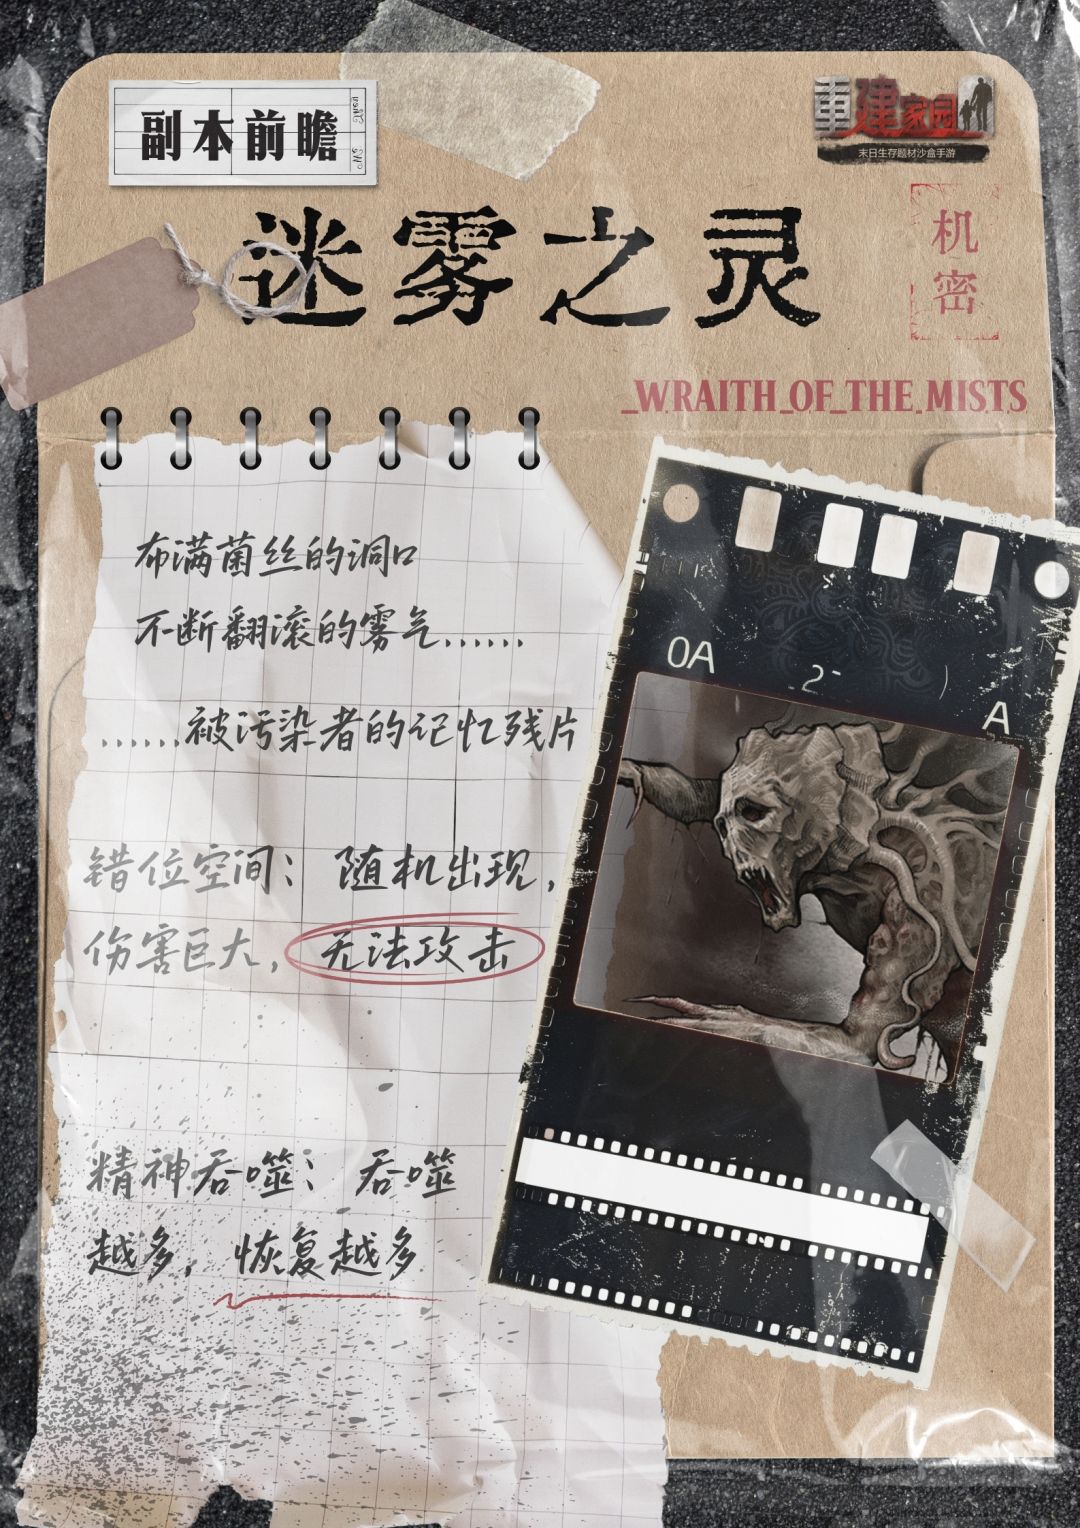 副本前瞻
重建家园
末日生存题材沙盒手游
迷雾之灵
机密
_WRAITH_OF_THE_MISTS
布满菌丝的洞口
不断翻滚的雾气......
......被污染者的记忆残片
错位空间：随机出现，
伤害巨大，无法攻击
精神吞噬：吞噬
越多，恢复越多
0A
2
A